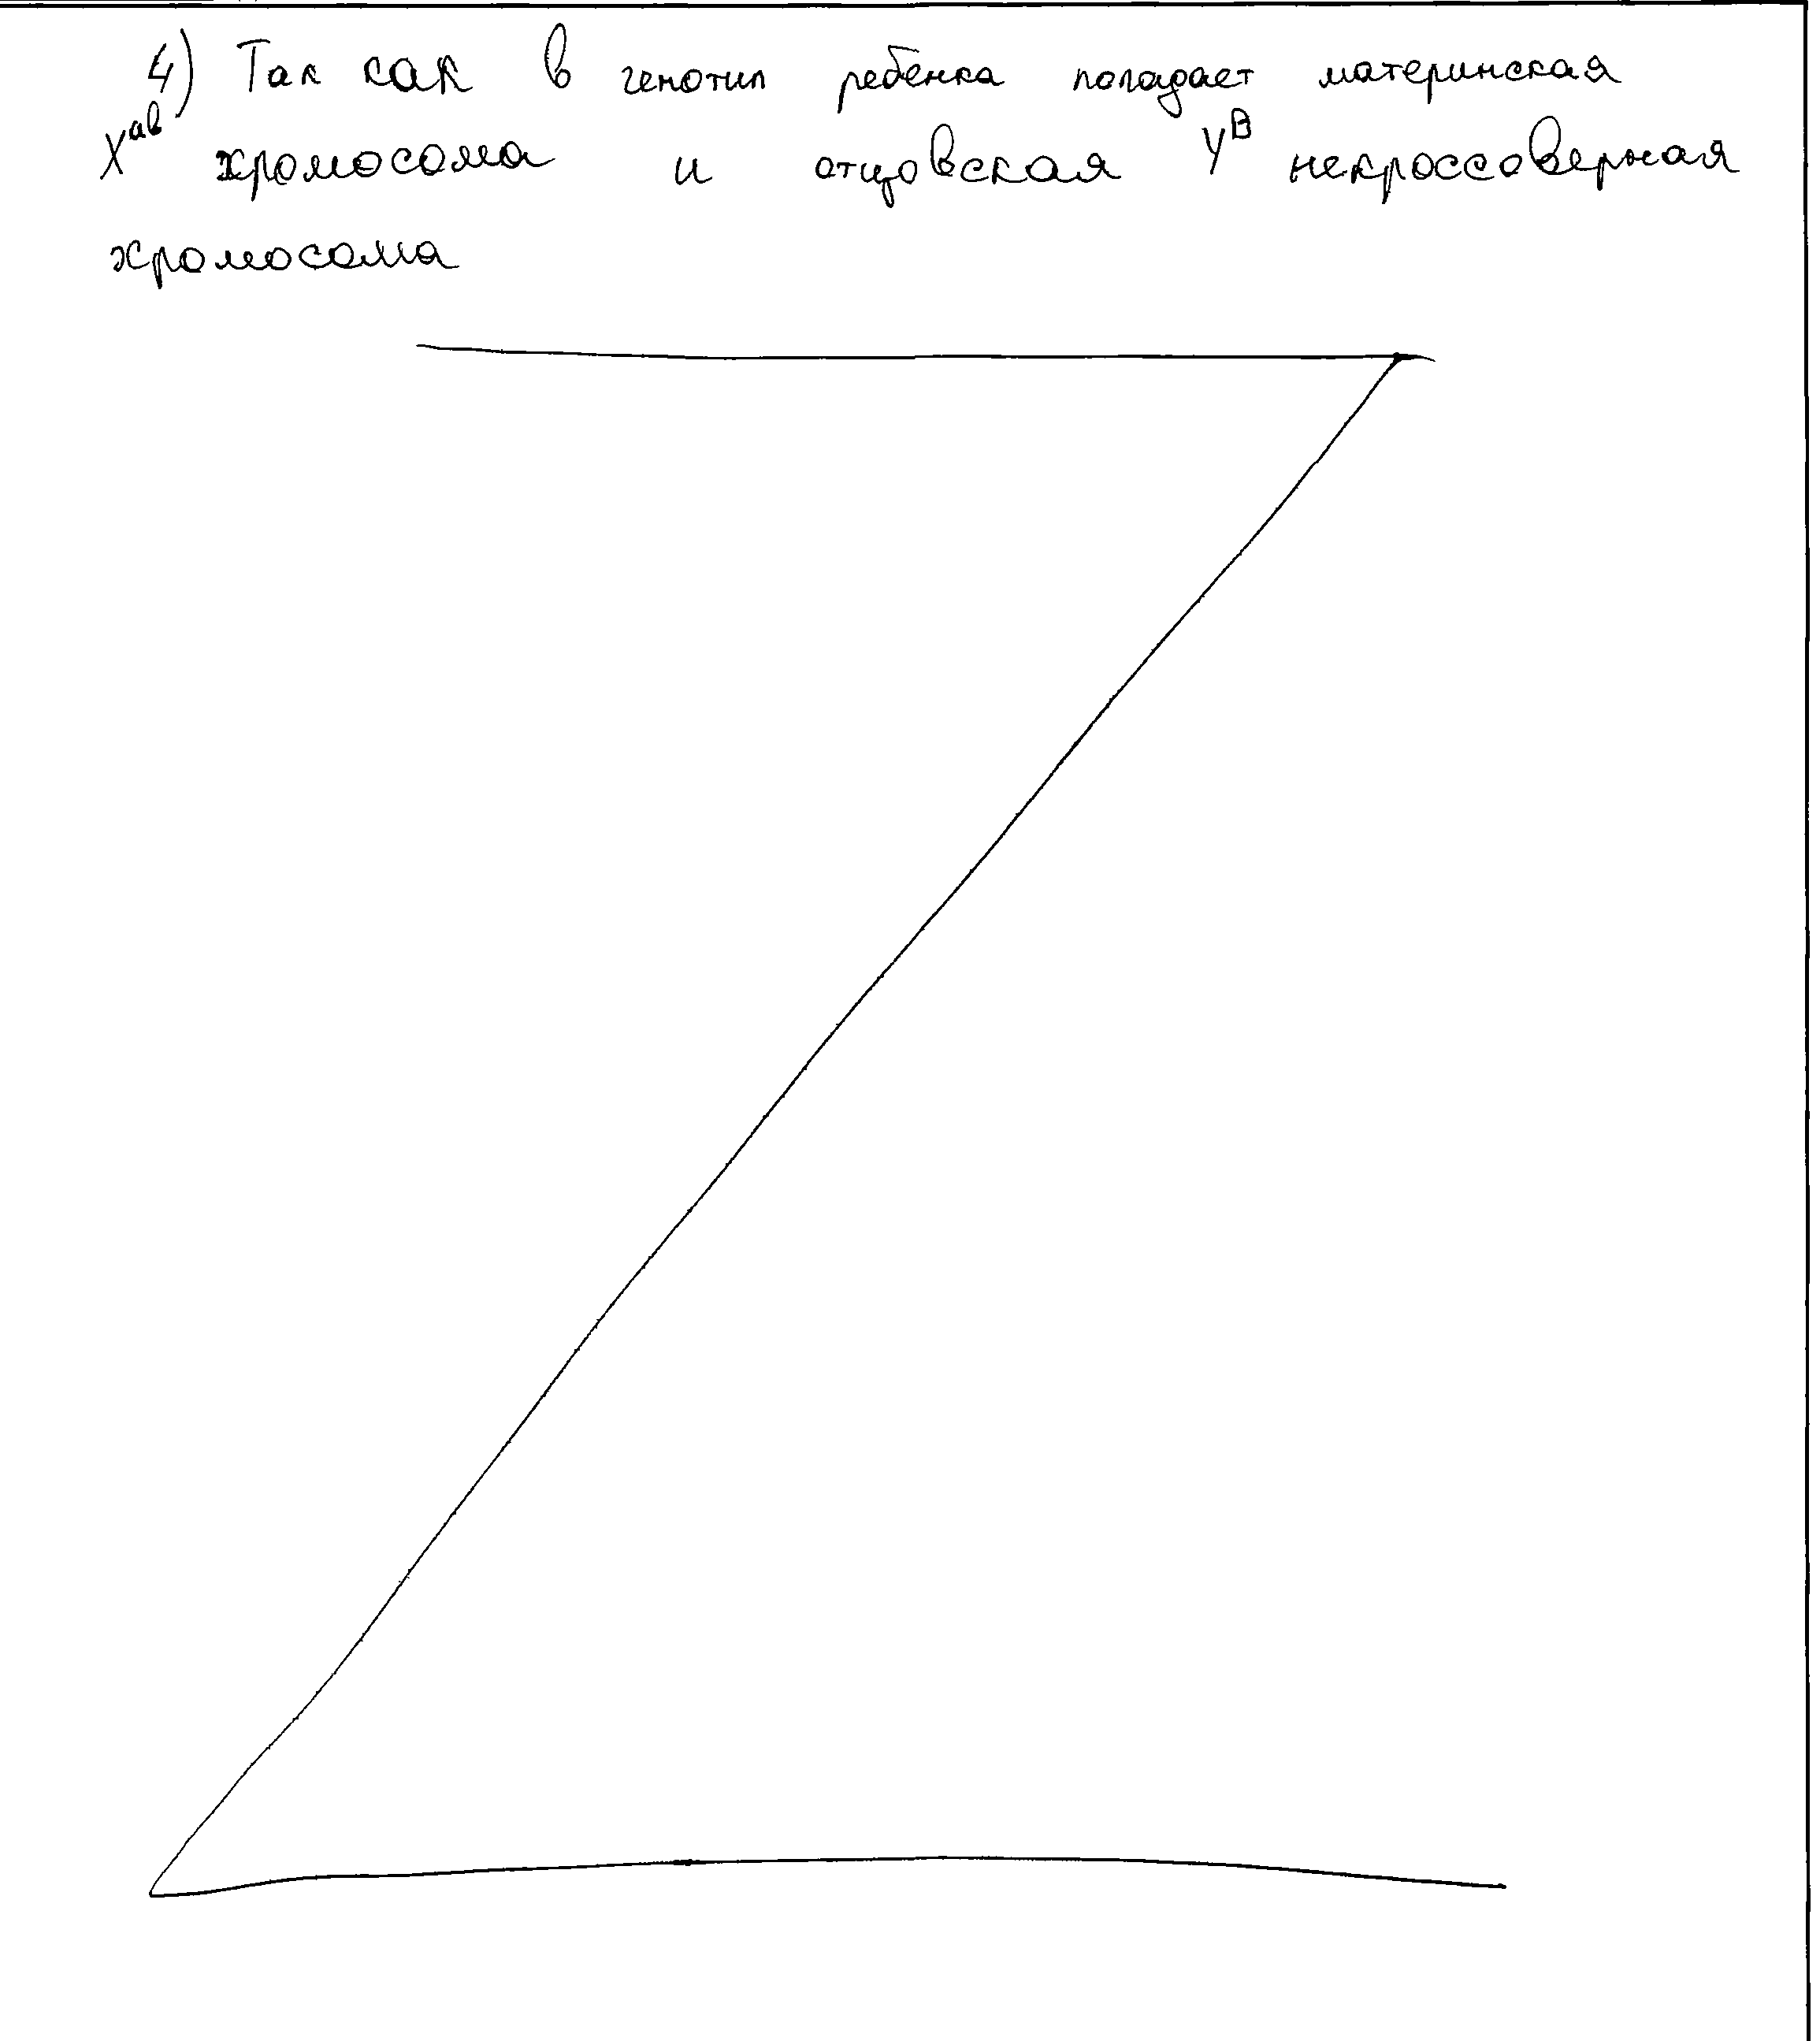 4) Так как в генотип ребенка попадает материнская
X^ab хромосома и отцовская Y^B некроссоверная
хромосома